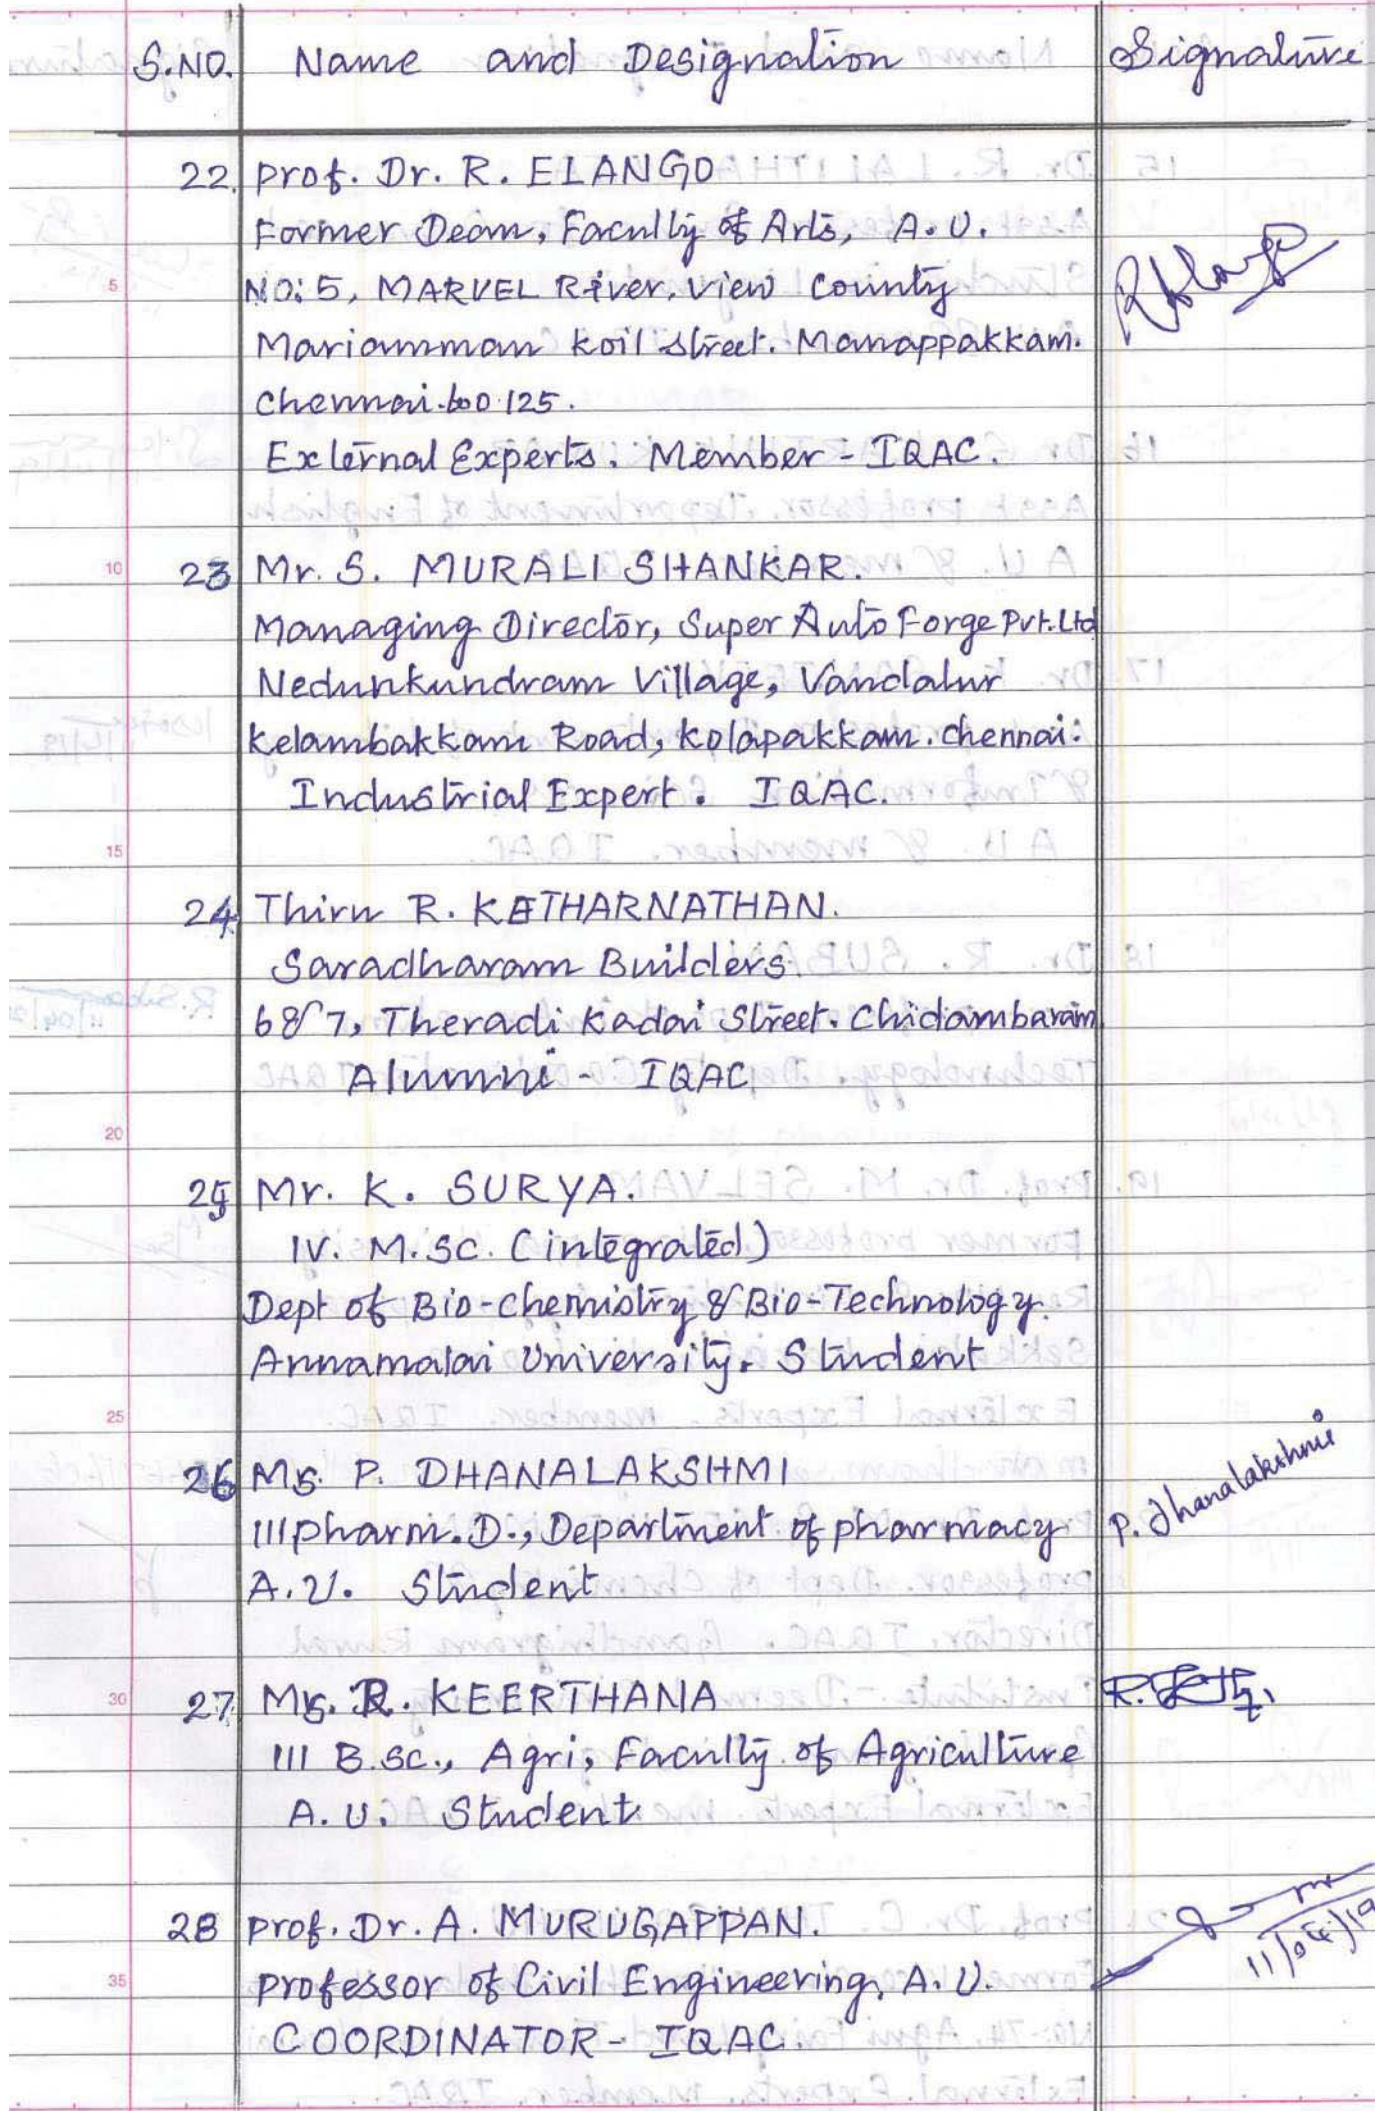 S.NO. Name and Designation Signature
22. Prof. Dr. R. ELANGO
Former Dean, Faculty of Arts, A.U.
NO: 5, MARVEL River. View County
Mariamman Koil Street. Manappakkam.
Chennai.600.125.
External Experts. Member - IQAC.
23 Mr. S. MURALI SHANKAR.
Managing Director, Super Auto Forge Pvt. Ltd
Nedunkundram Village, Vandalur
Kelambakkam Road, Kolapakkam. Chennai:
Industrial Expert. IQAC.
24 Thiru R. KETHARNATHAN.
Saradharam Builders.
6&7, Theradi Kadai Street. Chidambaram
Alumni - IQAC
25 Mr. K. SURYA.
IV. M.SC. (integrated)
Dept of Bio-Chemistry & Bio-Technology.
Annamalai University. Student
26 Ms. P. DHANALAKSHMI
III Pharm. D., Department of pharmacy
P. Dhanalakshmi
A.U. Student
27 Ms. R. KEERTHANA
III B.SC., Agri, Faculty of Agriculture
A.U. Student
28 Prof. Dr. A. MURUGAPPAN.
11/04/19
Professor of Civil Engineering, A.U.
COORDINATOR - IQAC.
5
10
15
20
25
30
35